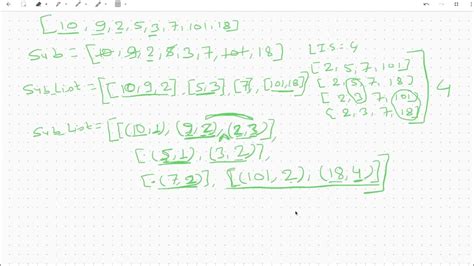 [10, 9, 2, 5, 3, 7, 101, 18]
Sub = [10, 9, 2, 5, 3, 7, 101, 18]
SubList = [[10, 9, 2], [5, 3], [7], [101, 18]]
SubList = [[(10, 1), (9, 2), (2, 3)],
[(5, 1), (3, 2)],
[(7, 2)], [(101, 2), (18, 4)]]
LIS = 4
[2, 5, 7, 101]
[2, 5, 7, 18]
[2, 3, 7, 101]
[2, 3, 7, 18]
4